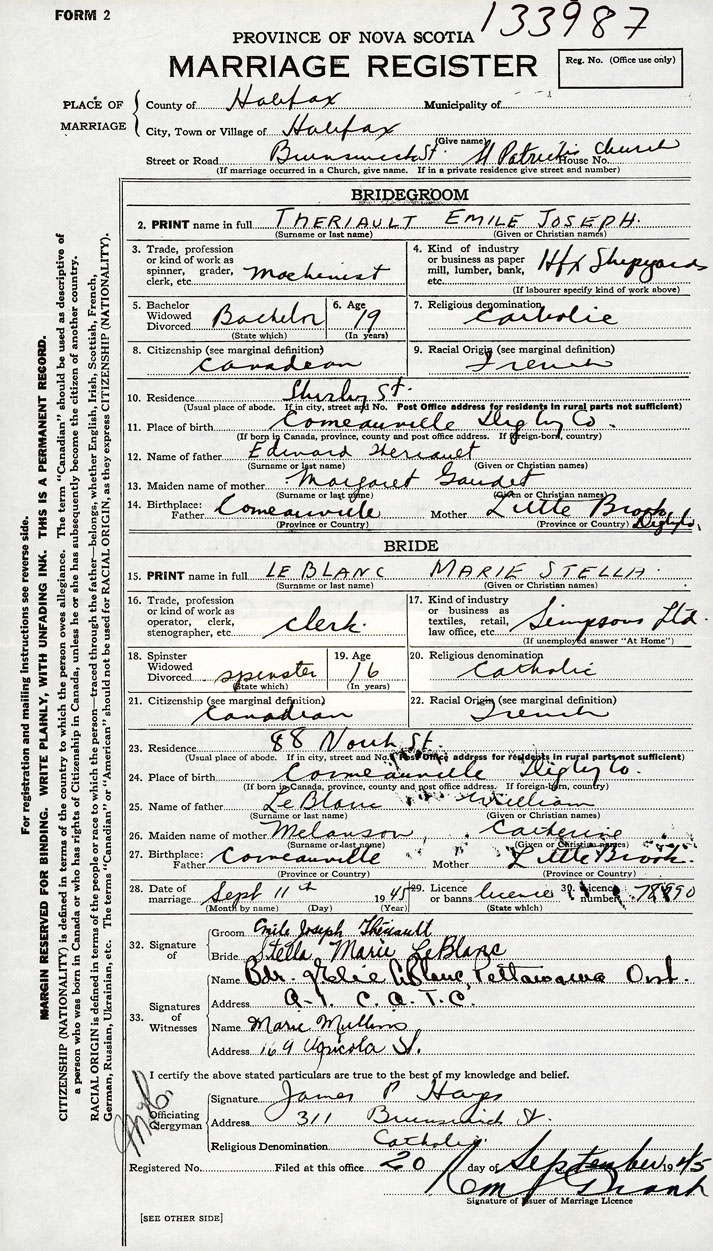 FORM 2
133987
PROVINCE OF NOVA SCOTIA
MARRIAGE REGISTER
Reg. No. (Office use only)
PLACE OF MARRIAGE
County of Halifax Municipality of
City, Town or Village of Halifax
(Give name)
Street or Road Brunswick St. St Patricks Church House No.
(If marriage occurred in a Church, give name. If in a private residence give street and number)
BRIDEGROOM
2. PRINT name in full THERIAULT EMILE JOSEPH.
(Surname or last name) (Given or Christian names)
3. Trade, profession or kind of work as spinner, grader, clerk, etc. Machinist
4. Kind of industry or business as paper mill, lumber, bank, etc. Hfx Shipyards
(If labourer specify kind of work above)
5. Bachelor Widowed Divorced Bachelor (State which)
6. Age 19 (In years)
7. Religious denomination Catholic
8. Citizenship (see marginal definition) Canadian
9. Racial Origin (see marginal definition) French
10. Residence Shirly St.
(Usual place of abode. If in city, street and No. Post Office address for residents in rural parts not sufficient)
11. Place of birth Comeauville Digby Co.
(If born in Canada, province, county and post office address. If foreign-born, country)
12. Name of father Edward Theriault
(Surname or last name) (Given or Christian names)
13. Maiden name of mother Margaret Gaudet
(Surname or last name) (Given or Christian names)
14. Birthplace: Father Comeauville Mother Little Brook Digby Co.
(Province or Country) (Province or Country)
BRIDE
15. PRINT name in full LE BLANC MARIE STELLA.
(Surname or last name) (Given or Christian names)
16. Trade, profession or kind of work as operator, clerk, stenographer, etc. Clerk.
17. Kind of industry or business as textiles, retail, law office, etc. Simpsons Ltd.
(If unemployed answer "At Home")
18. Spinster Widowed Divorced spinster (State which)
19. Age 16 (In years)
20. Religious denomination Catholic
21. Citizenship (see marginal definition) Canadian
22. Racial Origin (see marginal definition) French
23. Residence 88 North St.
(Usual place of abode. If in city, street and No. Post Office address for residents in rural parts not sufficient)
24. Place of birth Comeauville Digby Co.
(If born in Canada, province, county and post office address. If foreign-born, country)
25. Name of father LeBlanc William
(Surname or last name) (Given or Christian names)
26. Maiden name of mother Melanson, Catherine
(Surname or last name) (Given or Christian names)
27. Birthplace: Father Comeauville Mother Little Brook.
(Province or Country) (Province or Country)
28. Date of marriage Sept 11th 1945
(Month by name) (Day) (Year)
29. Licence or banns licence (State which)
30. Licence number
32. Signature of
Groom Emile Joseph Thériault
Bride Stella Marie LeBlanc
33. Signatures of Witnesses
Name Bdr. LeBlanc, Pettawawa Ont.
Address A-1 C.A.T.C.
Name Marie Mullins
Address 169 Agricola St.
I certify the above stated particulars are true to the best of my knowledge and belief.
Officiating Clergyman
Signature James P Hayes
Address 311 Brunswick St.
Religious Denomination Catholic.
Registered No. Filed at this office 20 day of September 1945
Signature of Issuer of Marriage Licence
[SEE OTHER SIDE]
For registration and mailing instructions see reverse side.
MARGIN RESERVED FOR BINDING. WRITE PLAINLY, WITH UNFADING INK. THIS IS A PERMANENT RECORD.
CITIZENSHIP (NATIONALITY) is defined in terms of the country to which the person owes allegiance. The term "Canadian" should be used as descriptive of
a person who was born in Canada or who has rights of Citizenship in Canada, unless he or she has subsequently become the citizen of another country.
RACIAL ORIGIN is defined in terms of the people or race to which the person—traced through the father—belongs, whether English, Irish, Scottish, French,
German, Russian, Ukrainian, etc. The terms "Canadian" or "American" should not be used for RACIAL ORIGIN, as they express CITIZENSHIP (NATIONALITY).